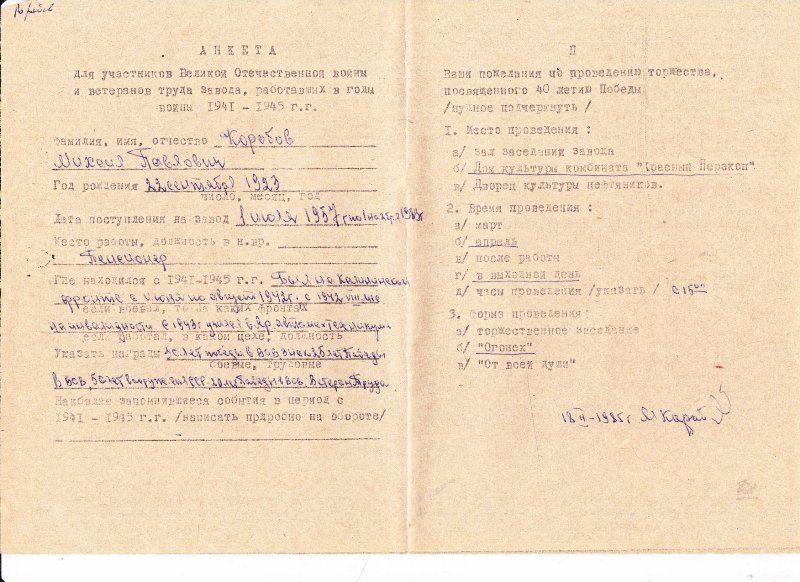 АНКЕТА
для участников Великой Отечественной войны
и ветеранов труда завода, работавших в годы
войны 1941 - 1945 г.г.
Фамилия, имя, отчество Коробов
Михаил Павлович
Год рождения 22 сентября 1923
число, месяц, год
Дата поступления на завод 1 июля 1957
Место работы, должность в н.вр.
Пенсионер
Где находился с 1941-1945 г.г. Был на Калининском
фронте с июля по август 1942г. с 1942
если воевал, то на каких фронтах
по инвалидности. с 1943г
если работал, в каком цехе, должность
Указать награды
боевые, трудовые
Ветеран Труда
Наиболее запомнившиеся события в период с
1941 - 1945 г.г. /написать прдробно на обороте/
П
Ваши пожелания по проведению торжества,
посвященного 40 летию Победы
/нужное подчеркнуть /
I. Место проведения :
а/ зал заседаний завода
б/ Дом культуры комбината "Красный Перекоп"
в/ Дворец культуры нефтяников.
2. Время проведения :
а/ март
б/ апрель
в/ после работы
г/ в выходной день
д/ часы проведения /указать / с 15⁰⁰
3. Форма проведения :
а/ торжественное заседание
б/ "Огонек"
в/ "От всей души"
18 II-1985г.